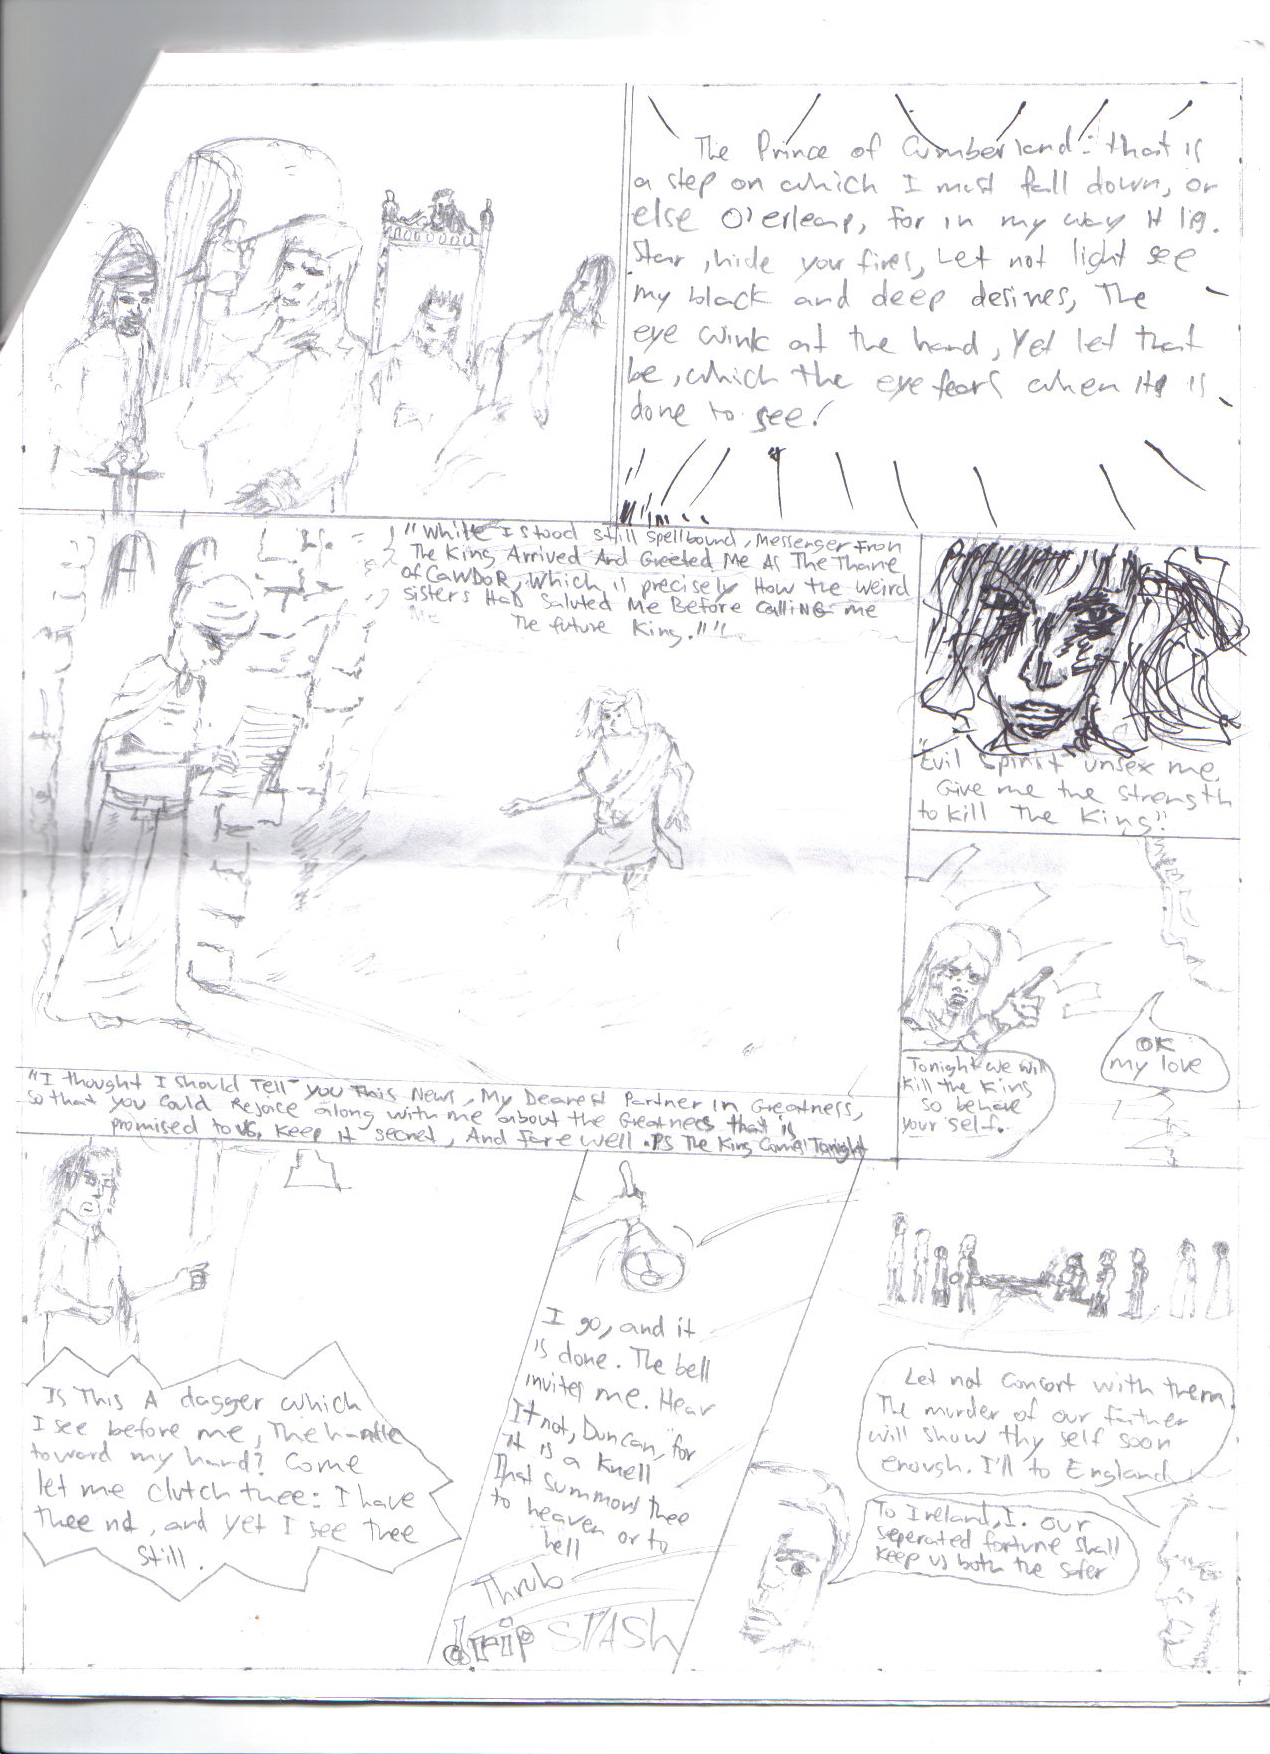 The Prince of Cumberland: that is
a step on which I must fall down, or
else O'erleap, for in my way it lis.
Star, hide your fires, Let not light see
my black and deep desires, The
eye wink at the hand, Yet let that
be, which the eye fears when it is
done to see!
"While I stood still spellbound, Messenger From
The King Arrived And Greeted Me As The Thane
of CaWDoR, Which is precisely How the weird
sisters HaD Saluted Me Before CalliNG me
The future King.""
"Evil Spirit unsex me,
Give me the strength
to kill The King."
Tonight we will
kill the King
so behave
your self.
OK
my love
"I thought I Should Tell you This News, My Dearest Partner In Greatness,
so that you could Rejoice along with me about the Greatness that is
promised to US. Keep It secret, And Fare well. PS The King Comes Tonight
Is This A dagger which
I see before me, The handle
toward my hand? Come
let me clutch thee: I have
thee not, and yet I see thee
still.
I go, and it
is done. The bell
invites me. Hear
It not, Duncan, for
it is a knell
that summons thee
to heaven or to
hell
Thrub
drip STASH
Let not Consort with them.
The murder of our father
will show thy self soon
enough. I'll to England
To Ireland, I. our
seperated fortune shall
keep us both the safer